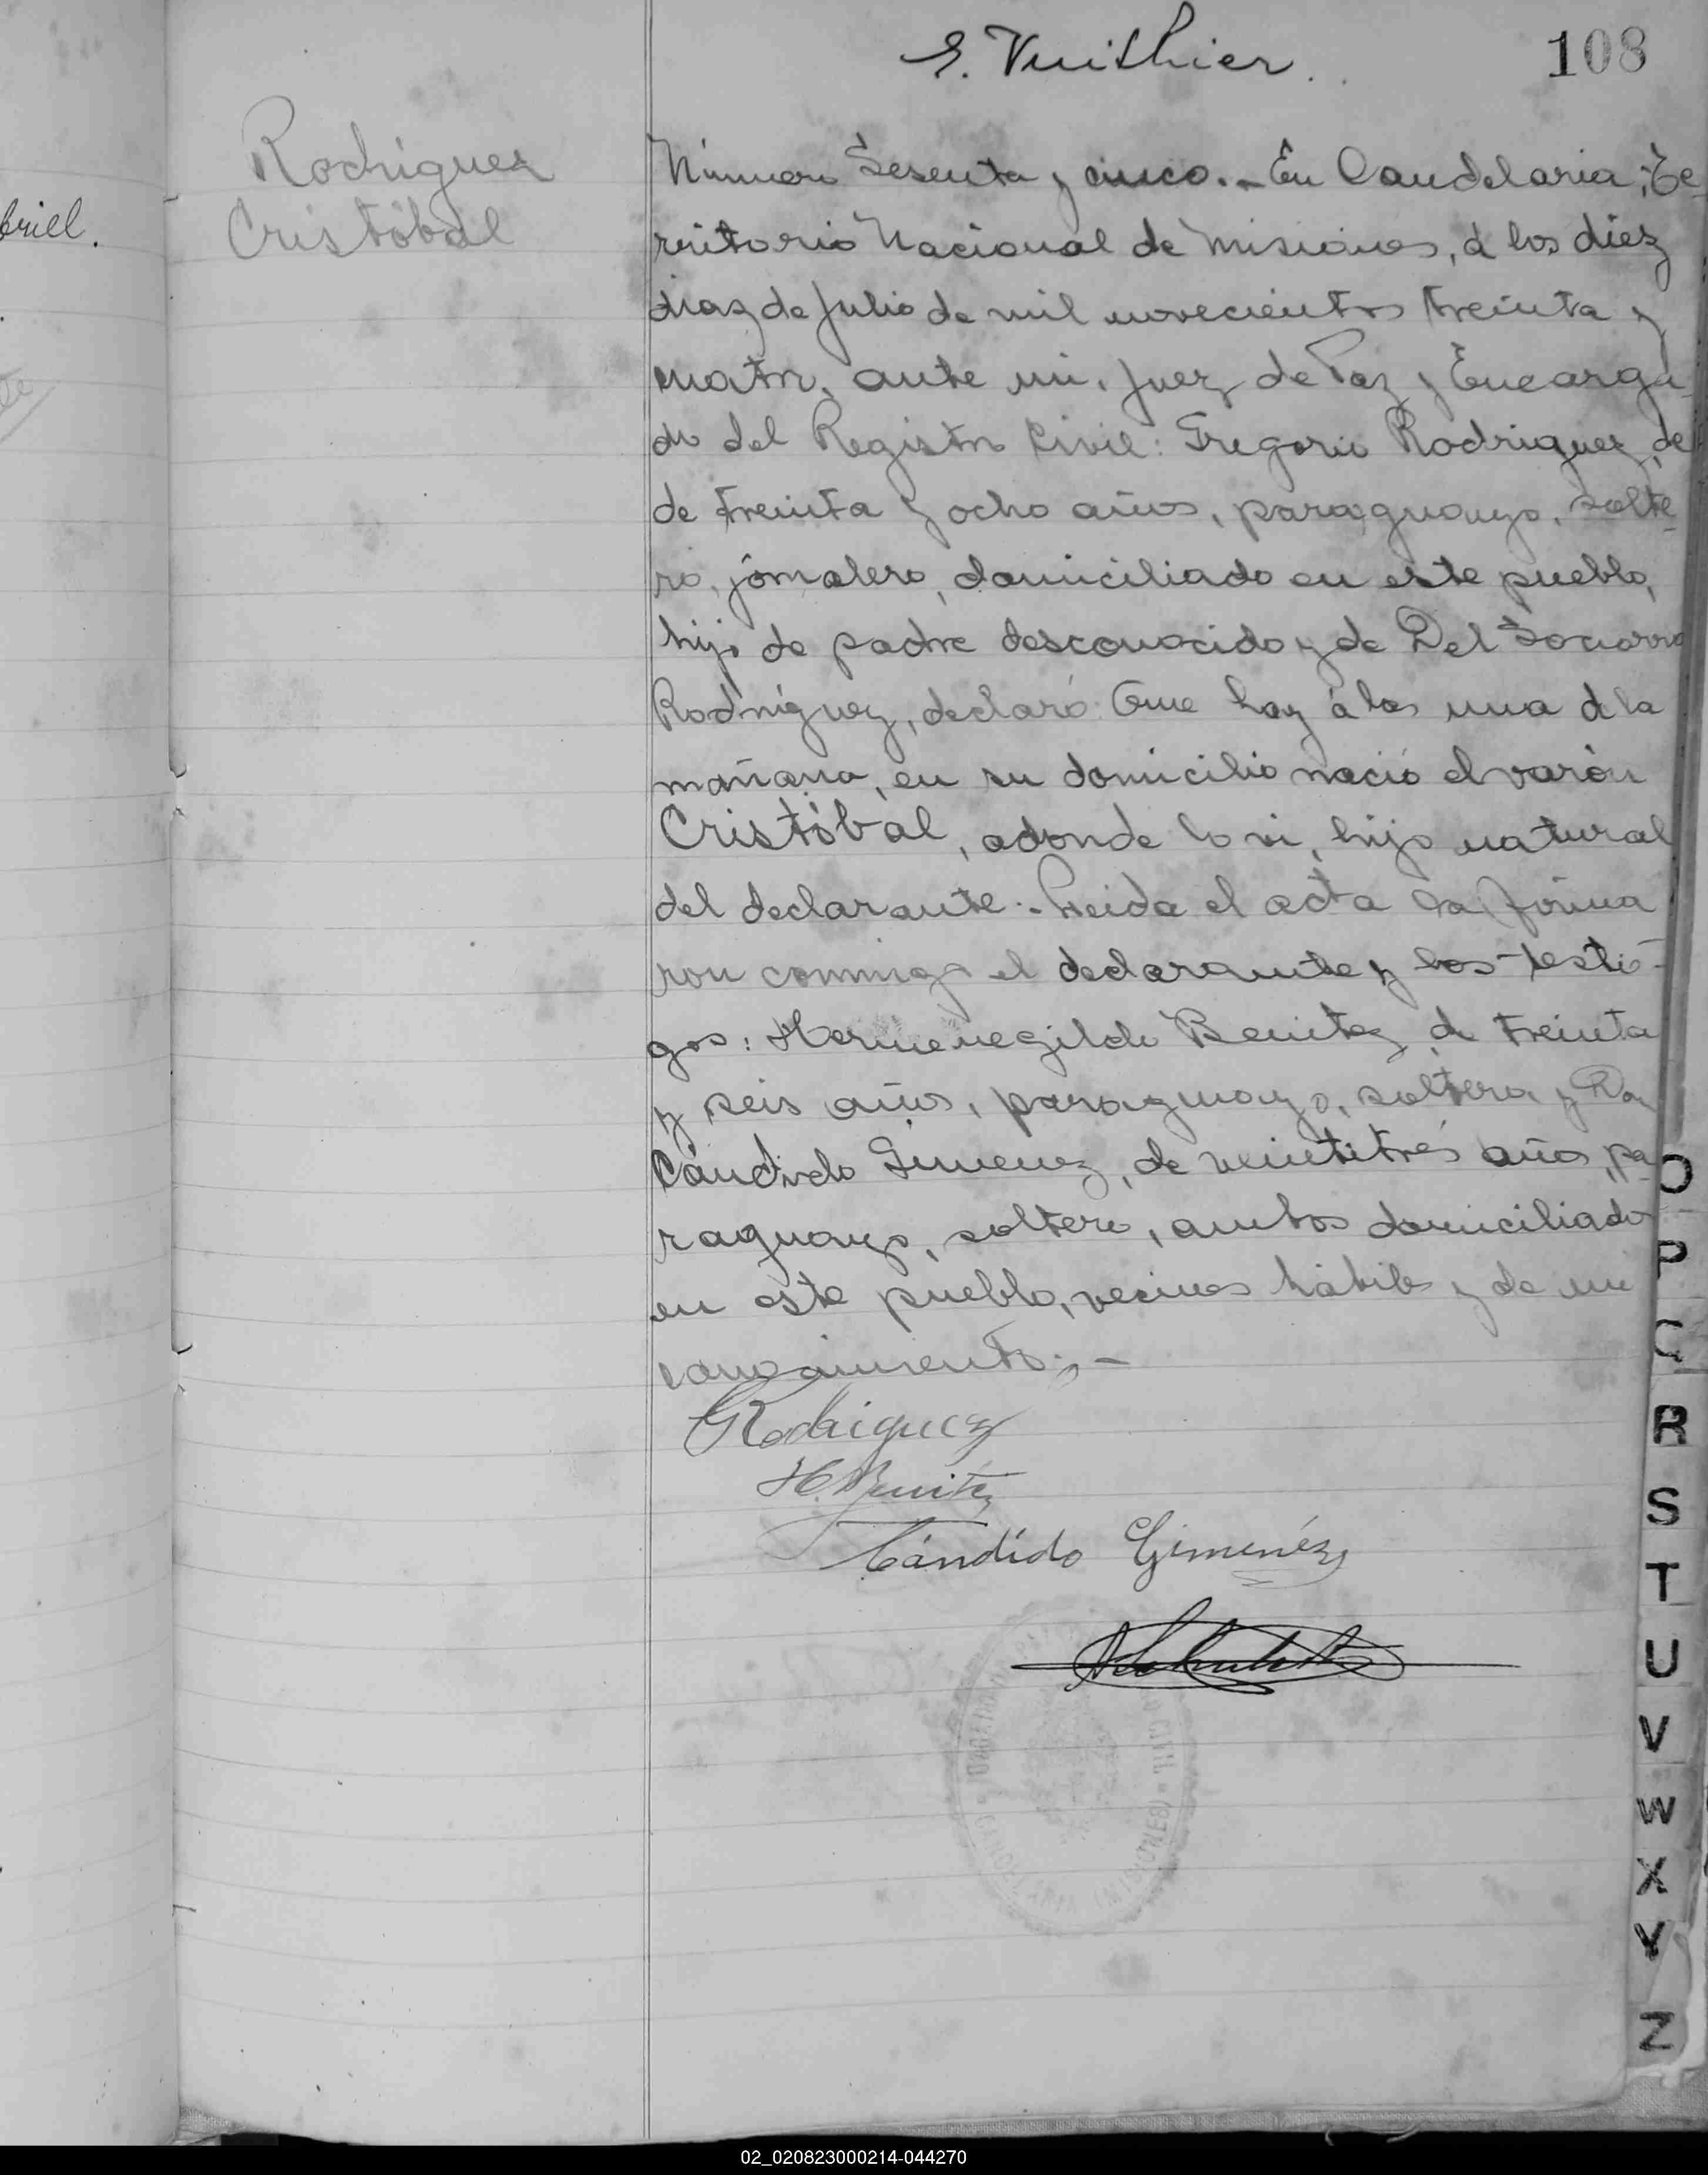 E. Vuithier.
108
Rodriguez
Cristóbal
briel.
Número Sesenta y cinco.- En Candelaria, Te-
rritorio Nacional de Misiones, á los diez
dias de Julio de mil novecientos treinta y
cuatro, ante mi, Juez de Paz y Encarga-
do del Registro Civil: Gregorio Rodriguez, de
de treinta y ocho años, paraguayo, solte-
ro, jornalero, domiciliado en este pueblo,
hijo de padre desconocido y de Del Socorro
Rodríguez, declaró: Que hoy á las una de la
mañana, en su domicilio nació el varón
Cristóbal, adonde lo vi, hijo natural
del declarante.- Leida el acta la firma
ron conmigo el declarante y los testi-
gos: Hermenegildo Benitez, de treinta
y seis años, paraguayo, soltero, y
Cándido Gimenez, de veintitrés años, pa-
raguayo, soltero, ambos domiciliados
en este pueblo, vecinos hábiles y de mi
conocimiento.-
GRodriguez
H. Benitez
Cándido Giménez
O
P
Q
R
S
T
U
V
W
X
Y
Z
02_020823000214-044270